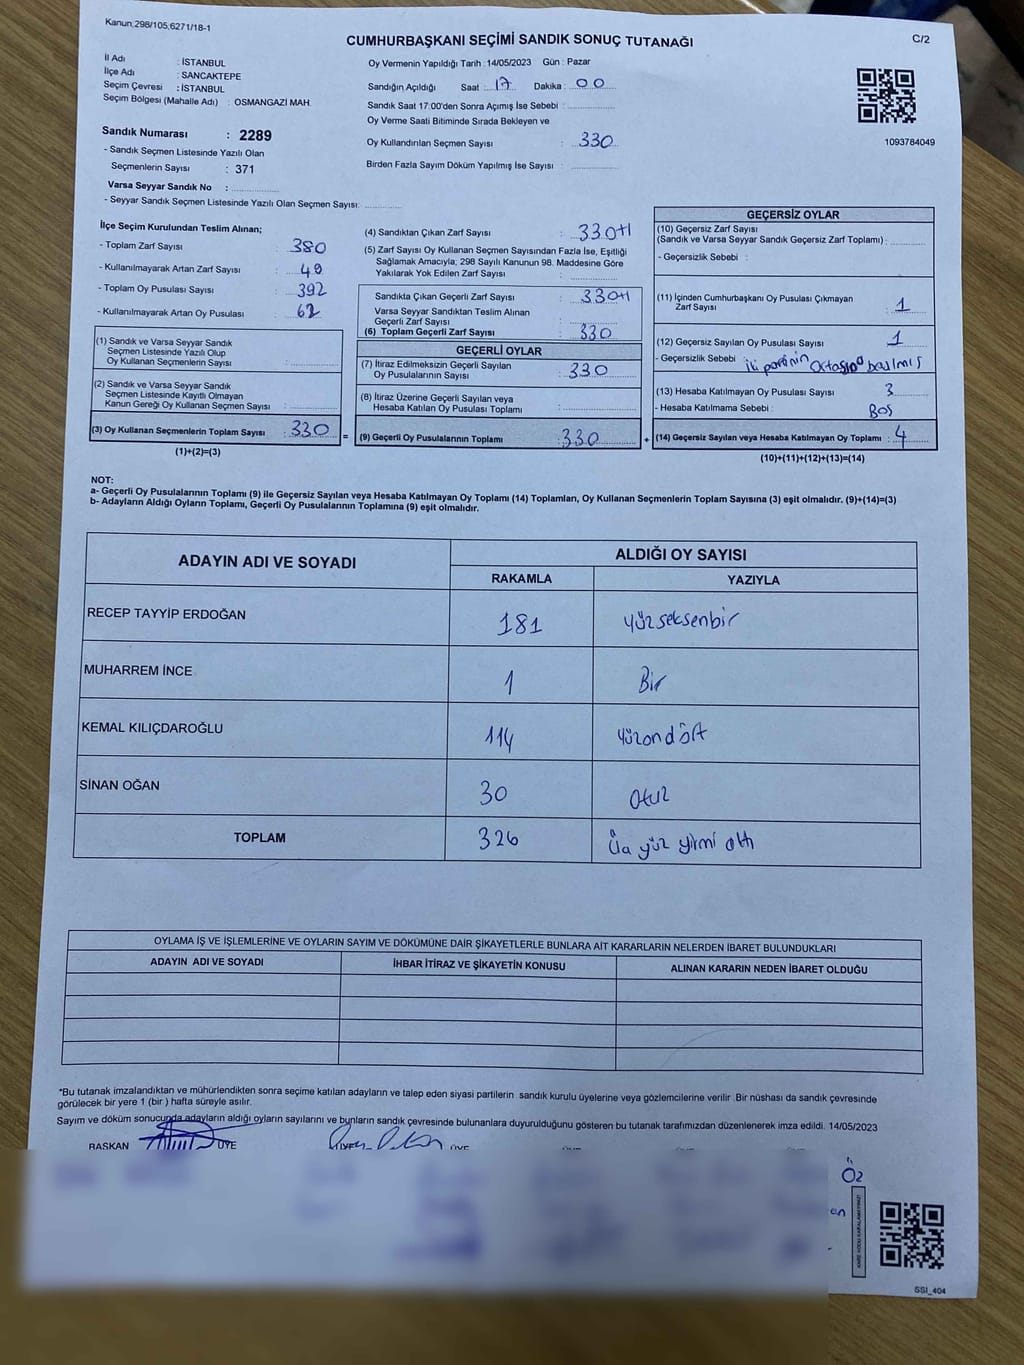 Kanun.298/105,6271/18-1
C/2
CUMHURBAŞKANI SEÇİMİ SANDIK SONUÇ TUTANAĞI
İl Adı : İSTANBUL
İlçe Adı : SANCAKTEPE
Seçim Çevresi : İSTANBUL
Seçim Bölgesi (Mahalle Adı) : OSMANGAZİ MAH.
Sandık Numarası : 2289
- Sandık Seçmen Listesinde Yazılı Olan
Seçmenlerin Sayısı : 371
Varsa Seyyar Sandık No :
- Seyyar Sandık Seçmen Listesinde Yazılı Olan Seçmen Sayısı:
Oy Vermenin Yapıldığı Tarih : 14/05/2023 Gün : Pazar
Sandığın Açıldığı Saat : 17 Dakika : 00
Sandık Saat 17:00'den Sonra Açımış İse Sebebi :
Oy Verme Saati Bitiminde Sırada Bekleyen ve
Oy Kullandırılan Seçmen Sayısı : 330
Birden Fazla Sayım Döküm Yapılmış İse Sayısı :
1093784049
İlçe Seçim Kurulundan Teslim Alınan;
- Toplam Zarf Sayısı : 380
- Kullanılmayarak Artan Zarf Sayısı : 49
- Toplam Oy Pusulası Sayısı : 392
- Kullanılmayarak Artan Oy Pusulası : 62
(1) Sandık ve Varsa Seyyar Sandık
Seçmen Listesinde Yazılı Olup
Oy Kullanan Seçmenlerin Sayısı :
(2) Sandık ve Varsa Seyyar Sandık
Seçmen Listesinde Kayıtlı Olmayan
Kanun Gereği Oy Kullanan Seçmen Sayısı :
(3) Oy Kullanan Seçmenlerin Toplam Sayısı : 330 =
(1)+(2)=(3)
(4) Sandıktan Çıkan Zarf Sayısı : 330+1
(5) Zarf Sayısı Oy Kullanan Seçmen Sayısından Fazla İse, Eşitliği
Sağlamak Amacıyla; 298 Sayılı Kanunun 98. Maddesine Göre
Yakılarak Yok Edilen Zarf Sayısı :
Sandıkta Çıkan Geçerli Zarf Sayısı : 330+1
Varsa Seyyar Sandıktan Teslim Alınan
Geçerli Zarf Sayısı :
(6) Toplam Geçerli Zarf Sayısı : 330
GEÇERLİ OYLAR
(7) İtiraz Edilmeksizin Geçerli Sayılan
Oy Pusulalarının Sayısı : 330
(8) İtiraz Üzerine Geçerli Sayılan veya
Hesaba Katılan Oy Pusulası Toplamı :
(9) Geçerli Oy Pusulalarının Toplamı : 330 +
GEÇERSİZ OYLAR
(10) Geçersiz Zarf Sayısı
(Sandık ve Varsa Seyyar Sandık Geçersiz Zarf Toplamı) :
- Geçersizlik Sebebi :
(11) İçinden Cumhurbaşkanı Oy Pusulası Çıkmayan
Zarf Sayısı : 1
(12) Geçersiz Sayılan Oy Pusulası Sayısı : 1
- Geçersizlik Sebebi : iki partinin ortasına basılmış
(13) Hesaba Katılmayan Oy Pusulası Sayısı : 3
- Hesaba Katılmama Sebebi : Boş
(14) Geçersiz Sayılan veya Hesaba Katılmayan Oy Toplamı : 4
(10)+(11)+(12)+(13)=(14)
NOT:
a- Geçerli Oy Pusulalarının Toplamı (9) ile Geçersiz Sayılan veya Hesaba Katılmayan Oy Toplamı (14) Toplamları, Oy Kullanan Seçmenlerin Toplam Sayısına (3) eşit olmalıdır. (9)+(14)=(3)
b- Adayların Aldığı Oyların Toplamı, Geçerli Oy Pusulalarının Toplamına (9) eşit olmalıdır.
ADAYIN ADI VE SOYADI ALDIĞI OY SAYISI
RAKAMLA YAZIYLA
RECEP TAYYİP ERDOĞAN 181 yüzseksenbir
MUHARREM İNCE 1 Bir
KEMAL KILIÇDAROĞLU 114 yüzondört
SİNAN OĞAN 30 Otuz
TOPLAM 326 Üç yüz yirmi altı
OYLAMA İŞ VE İŞLEMLERİNE VE OYLARIN SAYIM VE DÖKÜMÜNE DAİR ŞİKAYETLERLE BUNLARA AİT KARARLARIN NELERDEN İBARET BULUNDUKLARI
ADAYIN ADI VE SOYADI İHBAR İTİRAZ VE ŞİKAYETİN KONUSU ALINAN KARARIN NEDEN İBARET OLDUĞU
*Bu tutanak imzalandıktan ve mühürlendikten sonra seçime katılan adayların ve talep eden siyasi partilerin sandık kurulu üyelerine veya gözlemcilerine verilir .Bir nüshası da sandık çevresinde
görülecek bir yere 1 (bir ) hafta süreyle asılır.
Sayım ve döküm sonucunda adayların aldığı oyların sayılarını ve bunların sandık çevresinde bulunanlara duyurulduğunu gösteren bu tutanak tarafımızdan düzenlenerek imza edildi. 14/05/2023
BAŞKAN ÜYE ÜYE ÜYE
SSI_404